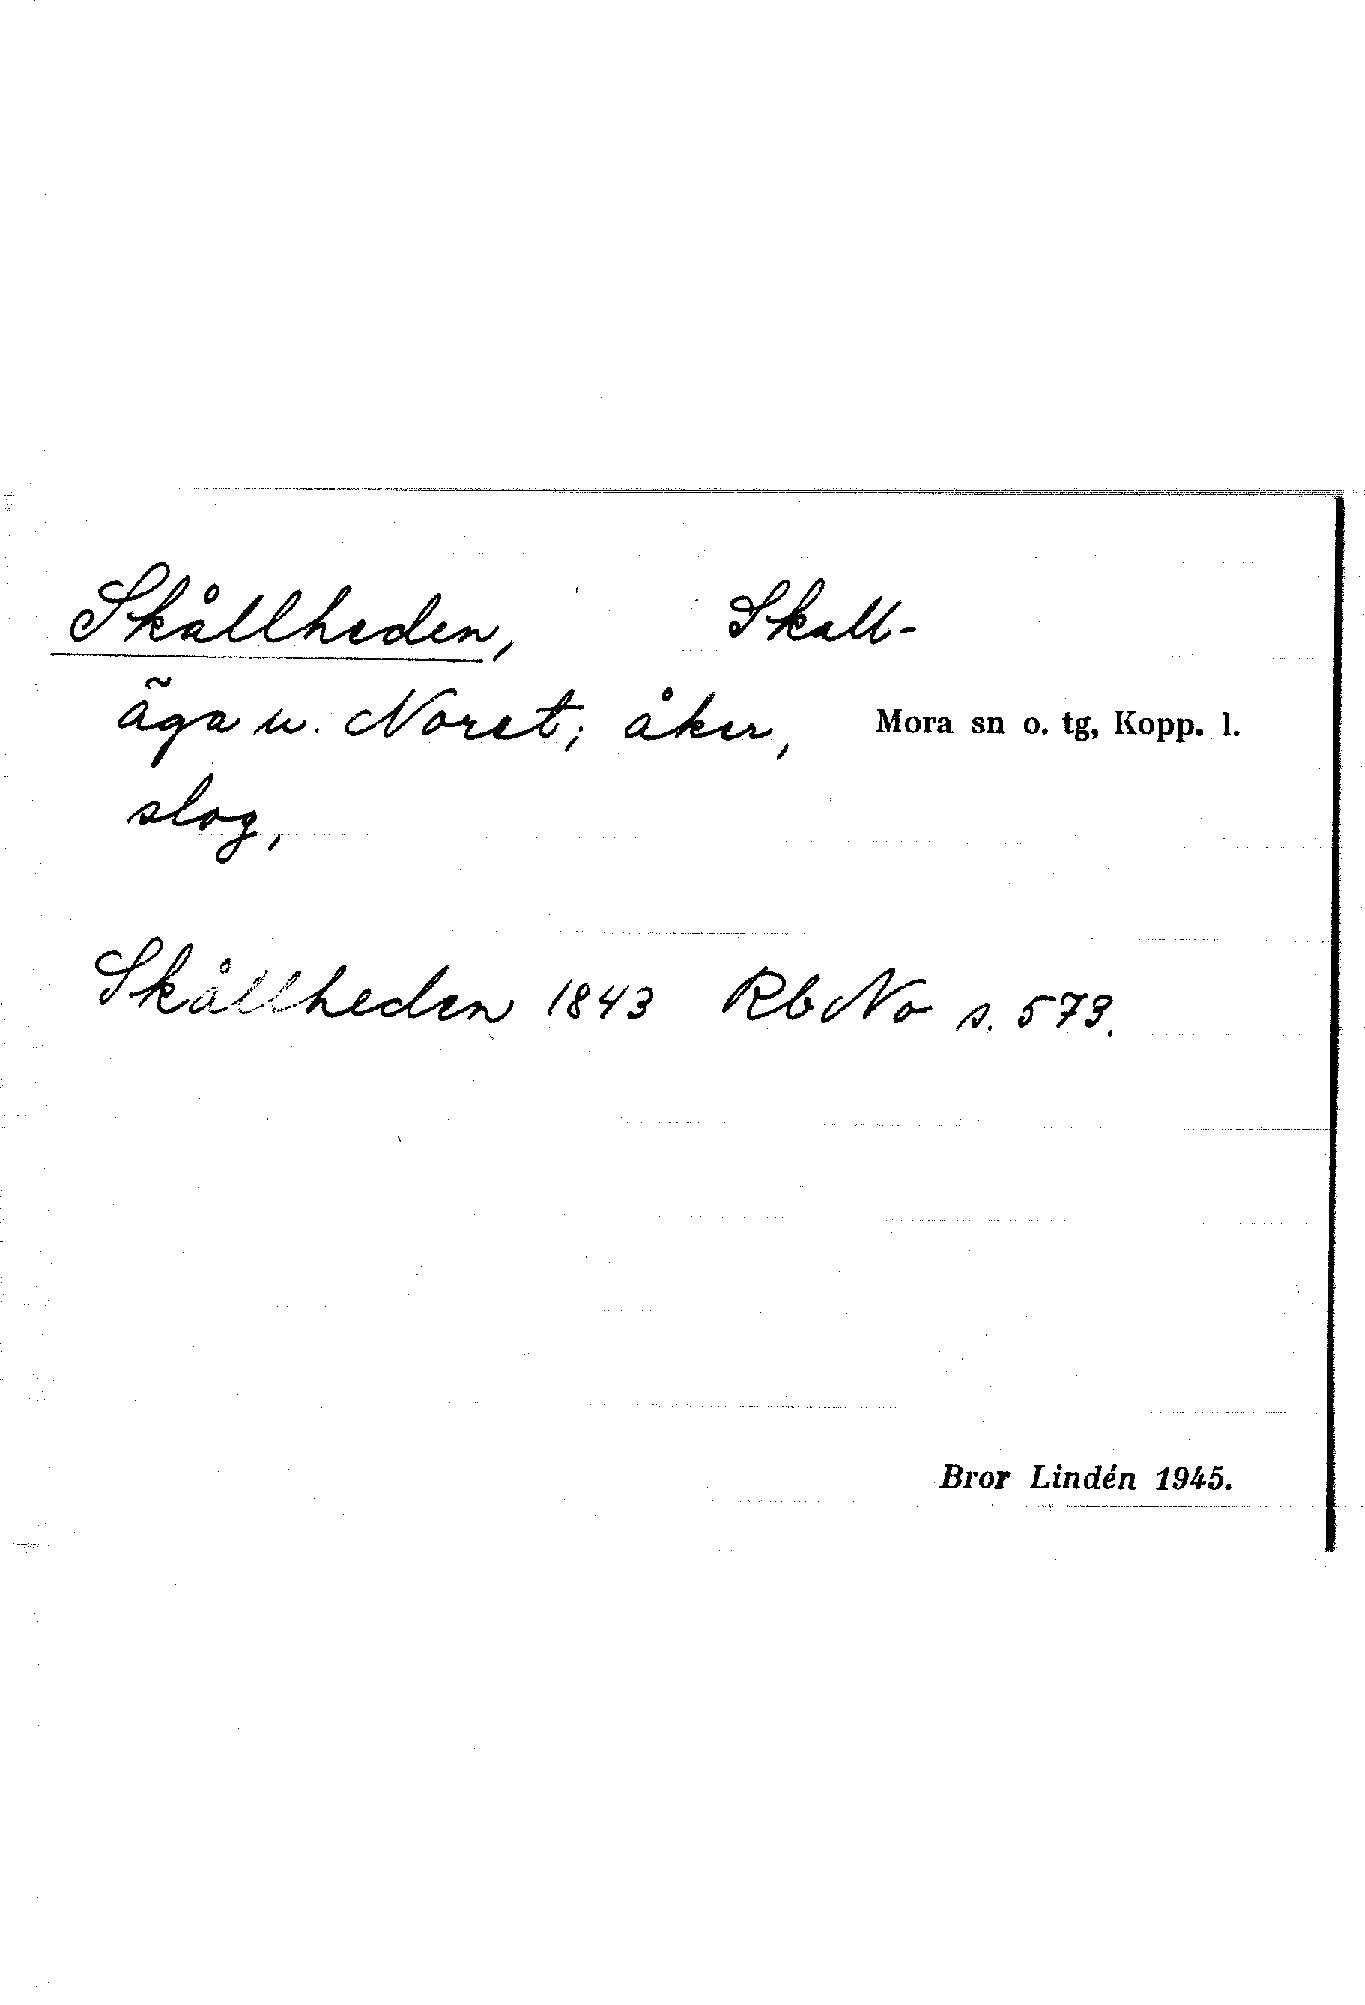 Skållheden, Skall-
äga u. Noret; åker, Mora sn o. tg, Kopp. l.
slog,
Skållheden 1843 Rb No s. 573.
Bror Lindén 1945.